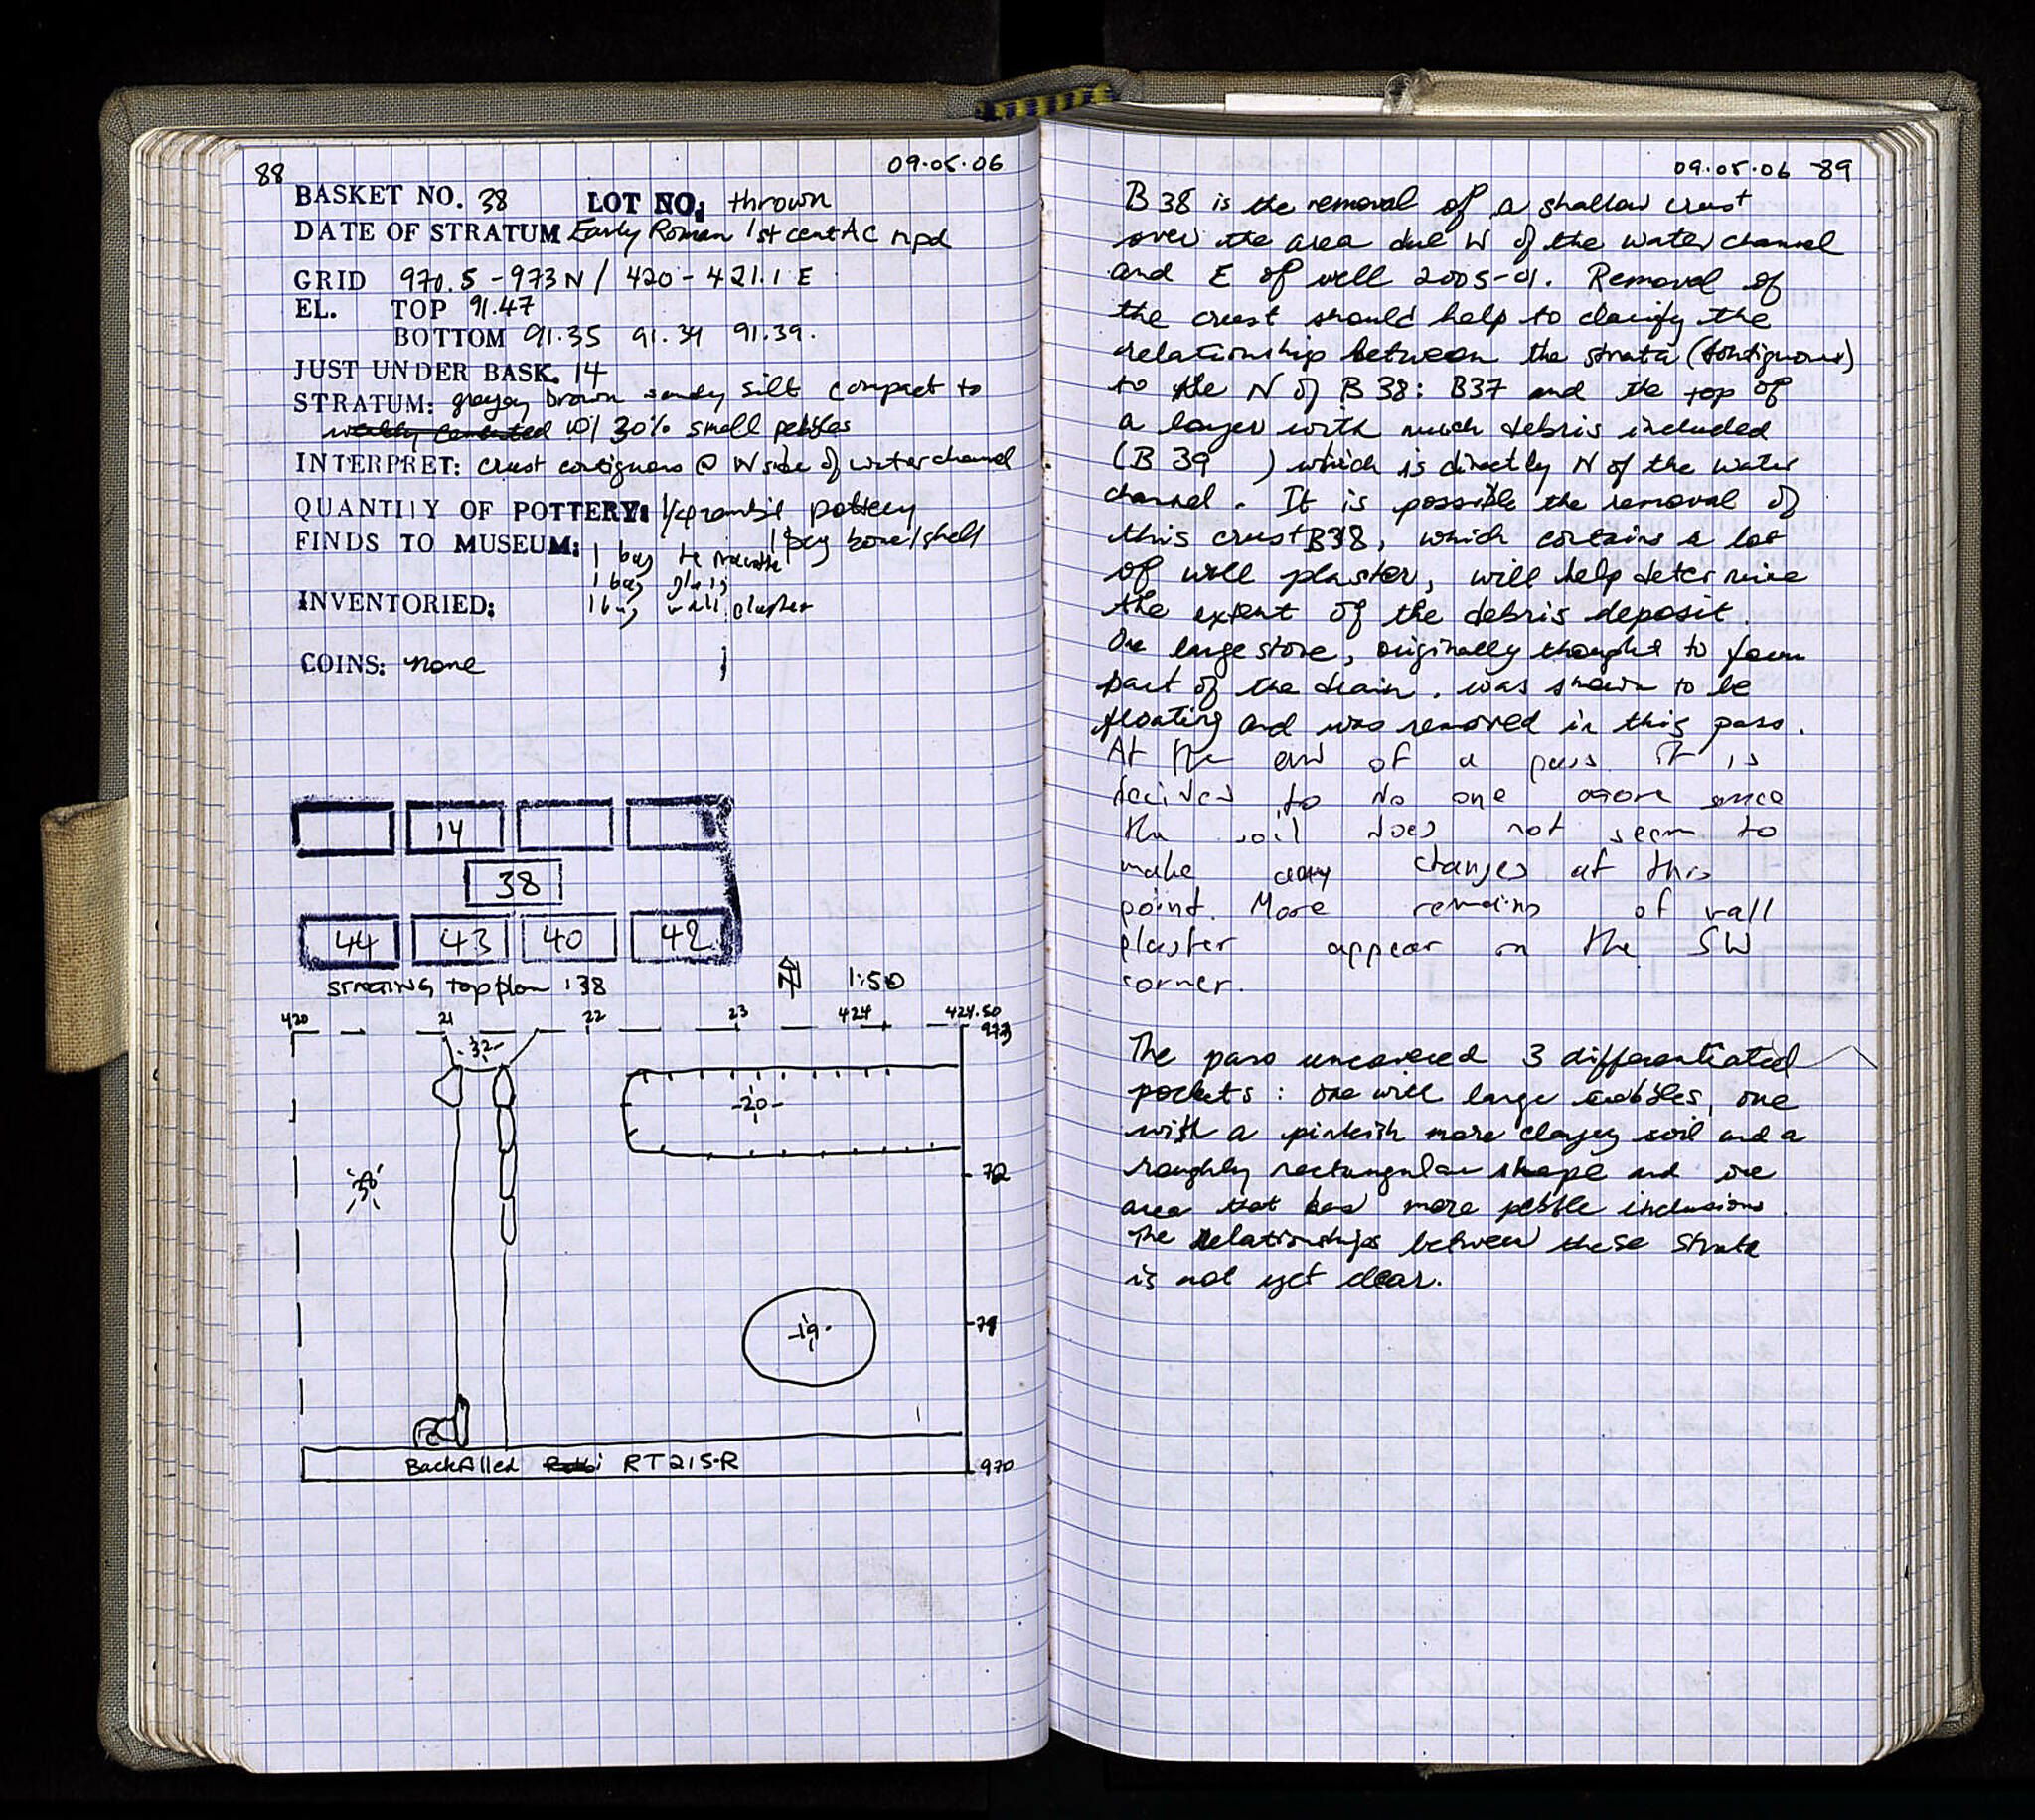 88
09.05.06
BASKET NO. 38 LOT NO: thrown
DATE OF STRATUM Early Roman 1st cent AC npd
GRID 970.5-973 N / 420-421.1 E
EL. TOP 91.47
BOTTOM 91.35 91.34 91.39.
JUST UNDER BASK. 14
STRATUM: greyey brown sandy silt compact to
weakly cemented w/ 30% small pebbles
INTERPRET: crust contiguous @ W side of water channel
QUANTITY OF POTTERY: 1/4 zembil pottery
FINDS TO MUSEUM: 1 bag bone/shell
1 bag
1 bag glass
INVENTORIED: 1 bag wall plaster
COINS: none
14
38
44 43 40 42
STARTING top plan 138 N 1:50
420 21 22 23 424 424.50
973
32
20
72
38
71
19
Backfilled RT 215-R
970
09.05.06 89
B 38 is the removal of a shallow crust
over the area due W of the water channel
and E of well 2005-01. Removal of
the crust should help to clarify the
relationship between the strata (contiguous)
to the N of B 38: B37 and the top of
a layer with much debris included
(B 39 ) which is directly N of the water
channel. It is possible the removal of
this crust B38, which contains a lot
of wall plaster, will help determine
the extent of the debris deposit.
One large stone, originally thought to form
part of the drain, was shown to be
floating and was removed in this pass.
At the end of a pass it is
decided to do one more since
the soil does not seem to
make any changes at this
point. More remains of wall
plaster appear on the SW
corner.
The pass uncovered 3 differentiated
pockets: one with large cobbles, one
with a pinkish more clayey soil and a
roughly rectangular shape and one
area that has more pebble inclusions.
The relationships between these strata
is not yet clear.